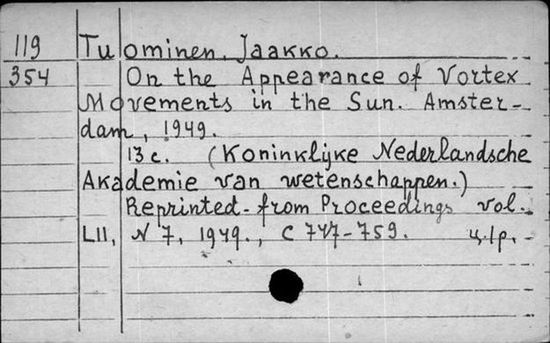 119 Tuominen, Jaakko.
354 On the Appearance of Vortex
Movements in the Sun. Amster-
dam, 1949.
13 c. (Koninklijke Nederlandsche
Akademie van wetenschappen.)
Reprinted from Proceedings vol.
LII, N 7, 1949., C 747-759.